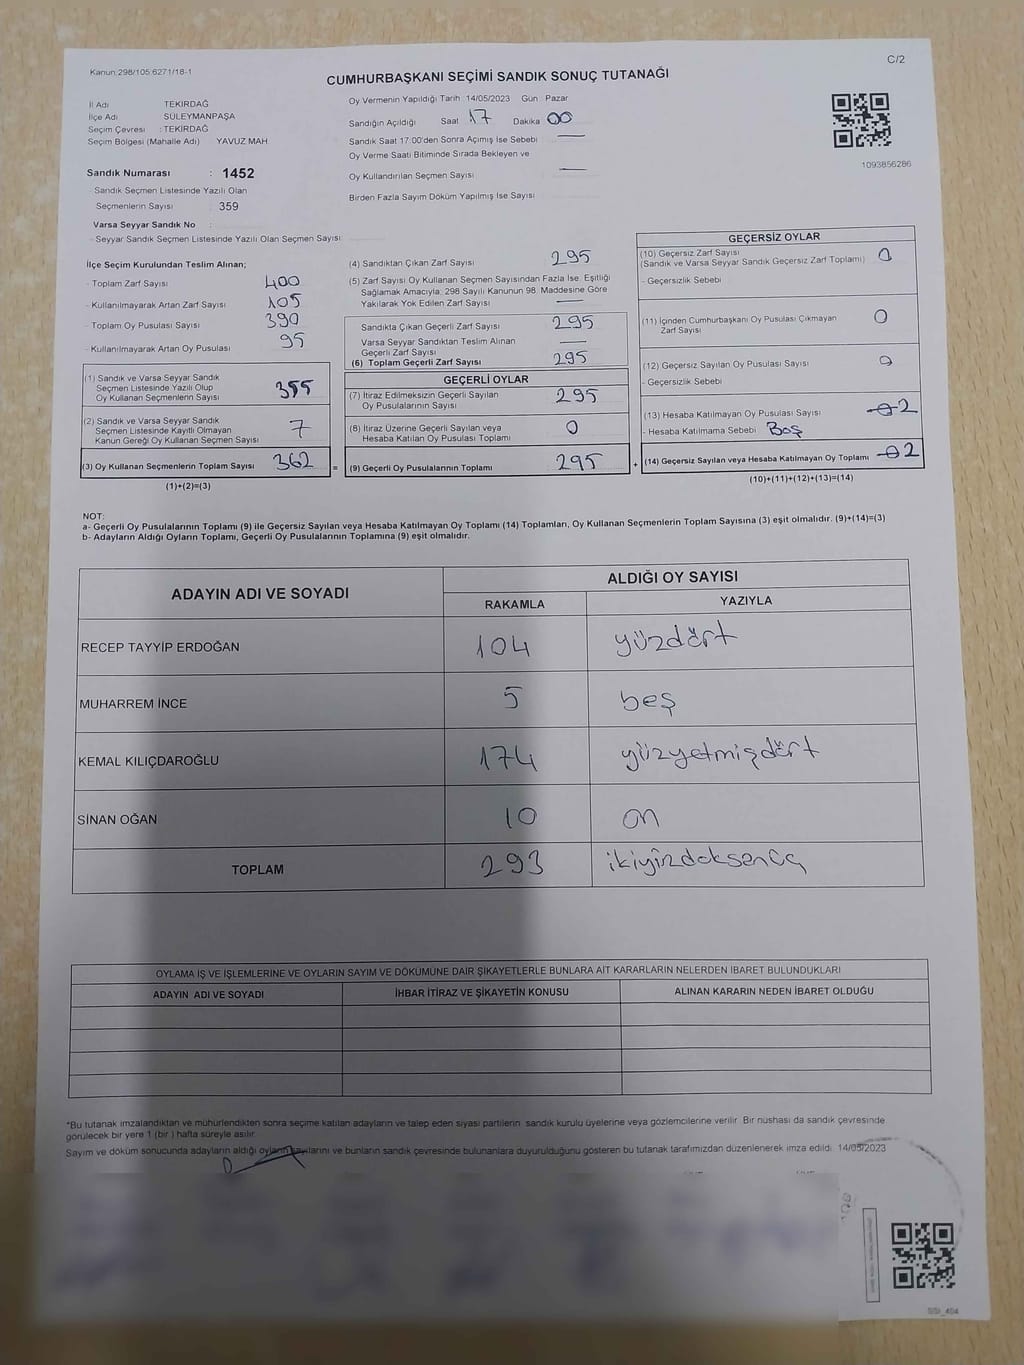 Kanun:298/105:6271/18-1
C/2
CUMHURBAŞKANI SEÇİMİ SANDIK SONUÇ TUTANAĞI
İl Adı TEKİRDAĞ
İlçe Adı SÜLEYMANPAŞA
Seçim Çevresi : TEKİRDAĞ
Seçim Bölgesi (Mahalle Adı) YAVUZ MAH
Sandık Numarası : 1452
Sandık Seçmen Listesinde Yazılı Olan
Seçmenlerin Sayısı : 359
Varsa Seyyar Sandık No
- Seyyar Sandık Seçmen Listesinde Yazılı Olan Seçmen Sayısı
Oy Vermenin Yapıldığı Tarih 14/05/2023 Gün Pazar
Sandığın Açıldığı Saat 17 Dakika 00
Sandık Saat 17:00'den Sonra Açımış İse Sebebi —
Oy Verme Saati Bitiminde Sırada Bekleyen ve
Oy Kullandırılan Seçmen Sayısı —
Birden Fazla Sayım Döküm Yapılmış İse Sayısı
1093856286
İlçe Seçim Kurulundan Teslim Alınan;
- Toplam Zarf Sayısı 400
- Kullanılmayarak Artan Zarf Sayısı 105
- Toplam Oy Pusulası Sayısı 390
- Kullanılmayarak Artan Oy Pusulası 95
(1) Sandık ve Varsa Seyyar Sandık
Seçmen Listesinde Yazılı Olup
Oy Kullanan Seçmenlerin Sayısı 355
(2) Sandık ve Varsa Seyyar Sandık
Seçmen Listesinde Kayıtlı Olmayan
Kanun Gereği Oy Kullanan Seçmen Sayısı 7
(3) Oy Kullanan Seçmenlerin Toplam Sayısı 362
(1)+(2)=(3)
(4) Sandıktan Çıkan Zarf Sayısı 295
(5) Zarf Sayısı Oy Kullanan Seçmen Sayısından Fazla İse, Eşitliği
Sağlamak Amacıyla; 298 Sayılı Kanunun 98. Maddesine Göre
Yakılarak Yok Edilen Zarf Sayısı —
Sandıkta Çıkan Geçerli Zarf Sayısı 295
Varsa Seyyar Sandıktan Teslim Alınan
Geçerli Zarf Sayısı —
(6) Toplam Geçerli Zarf Sayısı 295
GEÇERLİ OYLAR
(7) İtiraz Edilmeksizin Geçerli Sayılan
Oy Pusulalarının Sayısı 295
(8) İtiraz Üzerine Geçerli Sayılan veya
Hesaba Katılan Oy Pusulası Toplamı 0
= (9) Geçerli Oy Pusulalarının Toplamı 295
GEÇERSİZ OYLAR
(10) Geçersiz Zarf Sayısı
(Sandık ve Varsa Seyyar Sandık Geçersiz Zarf Toplamı) 0
- Geçersizlik Sebebi
(11) İçinden Cumhurbaşkanı Oy Pusulası Çıkmayan
Zarf Sayısı 0
(12) Geçersiz Sayılan Oy Pusulası Sayısı 0
- Geçersizlik Sebebi
(13) Hesaba Katılmayan Oy Pusulası Sayısı 0 2
- Hesaba Katılmama Sebebi Boş
+ (14) Geçersiz Sayılan veya Hesaba Katılmayan Oy Toplamı 0 2
(10)+(11)+(12)+(13)=(14)
NOT:
a- Geçerli Oy Pusulalarının Toplamı (9) ile Geçersiz Sayılan veya Hesaba Katılmayan Oy Toplamı (14) Toplamları, Oy Kullanan Seçmenlerin Toplam Sayısına (3) eşit olmalıdır. (9)+(14)=(3)
b- Adayların Aldığı Oyların Toplamı, Geçerli Oy Pusulalarının Toplamına (9) eşit olmalıdır.
ADAYIN ADI VE SOYADI
ALDIĞI OY SAYISI
RAKAMLA YAZIYLA
RECEP TAYYİP ERDOĞAN 104 yüzdört
MUHARREM İNCE 5 beş
KEMAL KILIÇDAROĞLU 174 yüzyetmişdört
SİNAN OĞAN 10 on
TOPLAM 293 ikiyüzdoksanüç
OYLAMA İŞ VE İŞLEMLERİNE VE OYLARIN SAYIM VE DÖKÜMÜNE DAİR ŞİKAYETLERLE BUNLARA AİT KARARLARIN NELERDEN İBARET BULUNDUKLARI
ADAYIN ADI VE SOYADI İHBAR İTİRAZ VE ŞİKAYETİN KONUSU ALINAN KARARIN NEDEN İBARET OLDUĞU
*Bu tutanak imzalandıktan ve mühürlendikten sonra seçime katılan adayların ve talep eden siyasi partilerin sandık kurulu üyelerine veya gözlemcilerine verilir. Bir nüshası da sandık çevresinde
görülecek bir yere 1 (bir) hafta süreyle asılır.
Sayım ve döküm sonucunda adayların aldığı oyların sayılarını ve bunların sandık çevresinde bulunanlara duyurulduğunu gösteren bu tutanak tarafımızdan düzenlenerek imza edildi. 14/05/2023